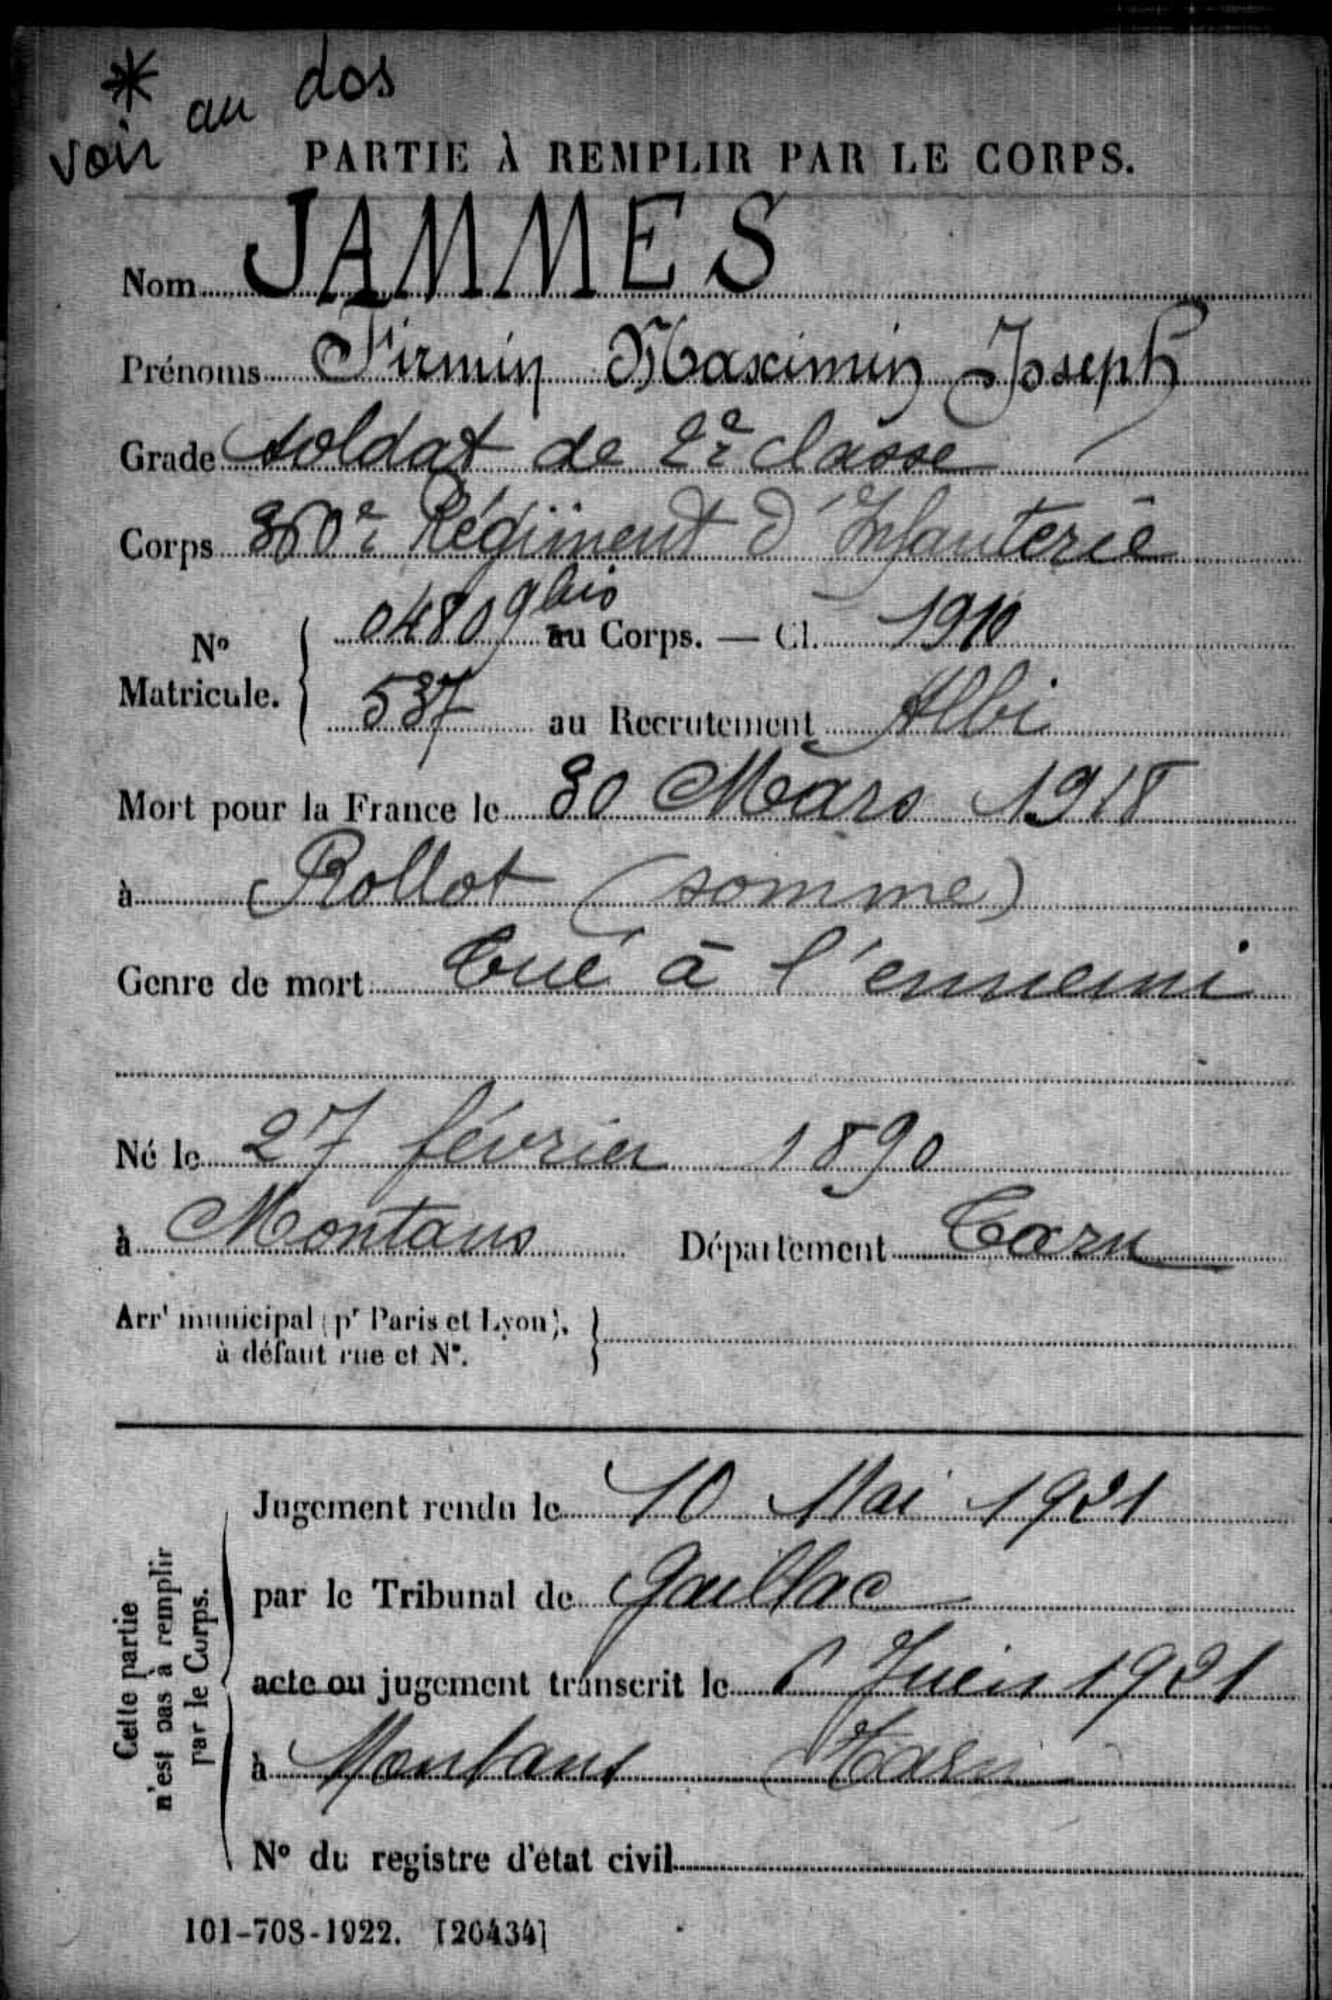 * voir au dos
PARTIE À REMPLIR PAR LE CORPS.
Nom JAMMES
Prénoms Firmin Maximin Joseph
Grade soldat de 2e classe
Corps 360e Régiment d'Infanterie
No Matricule. { 04809 bis au Corps. — Cl. 1910
537 au Recrutement Albi
Mort pour la France le 30 Mars 1918
à Rollot (somme)
Genre de mort tué à l'ennemi
Né le 27 février 1890
à Montans Département Tarn
Arrt municipal (pr Paris et Lyon), }
à défaut rue et N°.
Cette partie
n'est pas à remplir
par le Corps.
Jugement rendu le 10 Mai 1921
par le Tribunal de Gaillac
acte ou jugement transcrit le 6 Juin 1921
à Montans Tarn
N° du registre d'état civil
101-708-1922. [26434]